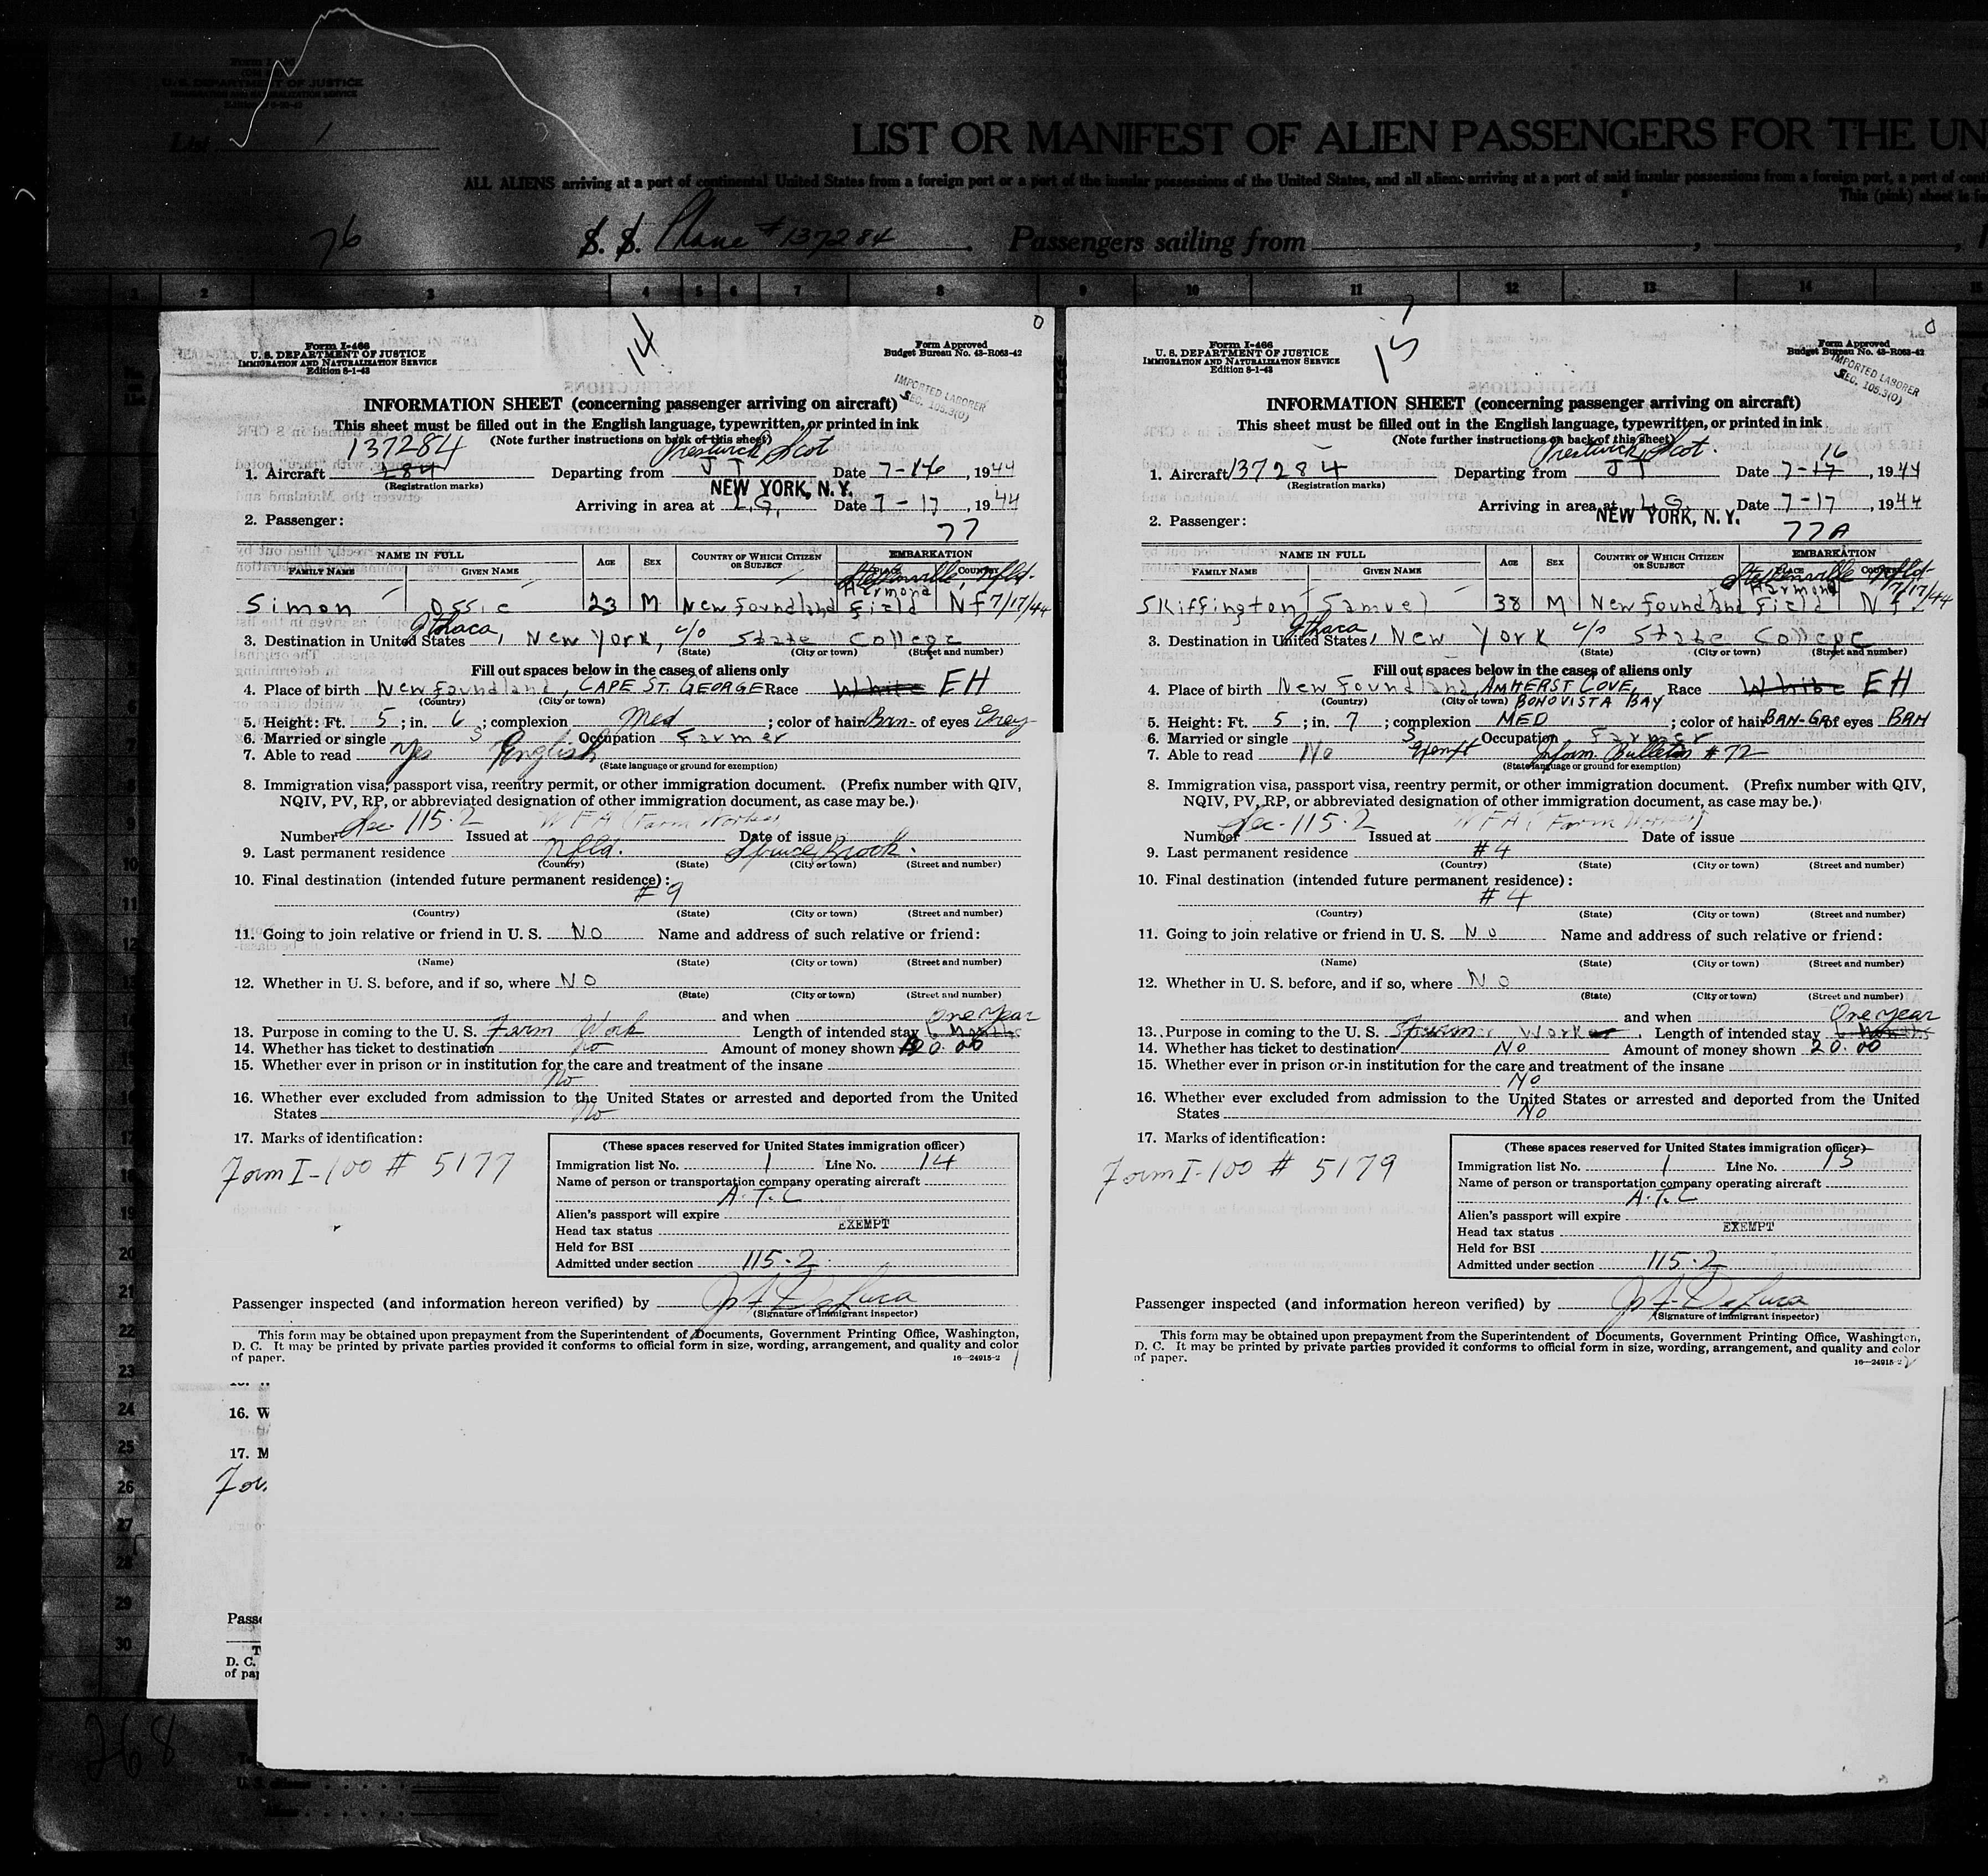 Form I-466
U. S. DEPARTMENT OF JUSTICE
IMMIGRATION AND NATURALIZATION SERVICE
List 1
LIST OR MANIFEST OF ALIEN PASSENGERS FOR THE UN
ALL ALIENS arriving at a port of continental United States from a foreign port or a port of the insular possessions of the United States, and all aliens arriving at a port of said insular possessions from a foreign port, a port of conti
This (pink) sheet is
76 S. S. Plane # 137284 . Passengers sailing from , , 1
1 2 3 4 5 6 7 8 9 10 11 12 13 14 15
14 0
Form I-466
U. S. DEPARTMENT OF JUSTICE
IMMIGRATION AND NATURALIZATION SERVICE
Edition 8-1-43
Form Approved
Budget Bureau No. 43-R063-42
IMPORTED LABORER
SEC. 105.3(O)
INFORMATION SHEET (concerning passenger arriving on aircraft)
This sheet must be filled out in the English language, typewritten, or printed in ink
(Note further instructions on back of this sheet)
137284 Prestwick, Scot
1. Aircraft 284 Departing from J T Date 7-16, 1944
(Registration marks)
NEW YORK, N. Y.
Arriving in area at L. G. Date 7-17, 1944
2. Passenger: 77
NAME IN FULL AGE SEX COUNTRY OF WHICH CITIZEN OR SUBJECT EMBARKATION
FAMILY NAME GIVEN NAME PLACE COUNTRY
Stephenville, Nfld.
Simon Ossie 23 M Newfoundland Harmond Field Nf 7/17/44
3. Destination in United States Ithaca, New York, c/o State College
(State) (City or town) (Street and number)
Fill out spaces below in the cases of aliens only
4. Place of birth Newfoundland, CAPE ST. GEORGE Race White EH
(Country) (City or town)
5. Height: Ft. 5; in. 6; complexion Med; color of hair Brn- of eyes Grey
6. Married or single S Occupation Farmer
7. Able to read Yes English
(State language or ground for exemption)
8. Immigration visa, passport visa, reentry permit, or other immigration document. (Prefix number with QIV,
NQIV, PV, RP, or abbreviated designation of other immigration document, as case may be.)
Number Sec. 115.2 Issued at WFA (Farm Worker Date of issue
9. Last permanent residence Nfld. Spruce Brook.
(Country) (State) (City or town) (Street and number)
10. Final destination (intended future permanent residence):
# 9
(Country) (State) (City or town) (Street and number)
11. Going to join relative or friend in U. S. NO Name and address of such relative or friend:
(Name) (State) (City or town) (Street and number)
12. Whether in U. S. before, and if so, where NO
(State) (City or town) (Street and number)
and when One Year
13. Purpose in coming to the U. S. Farm Work Length of intended stay 6 Months
14. Whether has ticket to destination No Amount of money shown 20.00
15. Whether ever in prison or in institution for the care and treatment of the insane
No
16. Whether ever excluded from admission to the United States or arrested and deported from the United
States No
17. Marks of identification:
Form I-100 # 5177
(These spaces reserved for United States immigration officer)
Immigration list No. 1 Line No. 14
Name of person or transportation company operating aircraft
A. T. C.
Alien's passport will expire
Head tax status EXEMPT
Held for BSI
Admitted under section 115.2
Passenger inspected (and information hereon verified) by J F DeLuca
(Signature of immigrant inspector)
This form may be obtained upon prepayment from the Superintendent of Documents, Government Printing Office, Washington,
D. C. It may be printed by private parties provided it conforms to official form in size, wording, arrangement, and quality and color
of paper. 16—24915-2
15 0
Form I-466
U. S. DEPARTMENT OF JUSTICE
IMMIGRATION AND NATURALIZATION SERVICE
Edition 8-1-43
Form Approved
Budget Bureau No. 43-R063-42
IMPORTED LABORER
SEC. 105.3(O)
INFORMATION SHEET (concerning passenger arriving on aircraft)
This sheet must be filled out in the English language, typewritten, or printed in ink
(Note further instructions on back of this sheet)
Prestwick, Scot. 16
1. Aircraft 137284 Departing from J T Date 7-17, 1944
(Registration marks)
Arriving in area at L. G. Date 7-17, 1944
NEW YORK, N. Y.
2. Passenger: 77A
NAME IN FULL AGE SEX COUNTRY OF WHICH CITIZEN OR SUBJECT EMBARKATION
FAMILY NAME GIVEN NAME PLACE COUNTRY
Stephenville Nfld
Skiffington Samuel 38 M Newfoundland Harmond Field Nf 7/17/44
3. Destination in United States Ithaca, New York c/o State College
(State) (City or town) (Street and number)
Fill out spaces below in the cases of aliens only
4. Place of birth Newfoundland, AMHERST COVE, Race White EH
(Country) (City or town) BONOVISTA BAY
5. Height: Ft. 5; in. 7; complexion MED; color of hair BRN-GR of eyes BRN
6. Married or single S Occupation Farmer
7. Able to read No Exempt Inform. Bulletin # 72
(State language or ground for exemption)
8. Immigration visa, passport visa, reentry permit, or other immigration document. (Prefix number with QIV,
NQIV, PV, RP, or abbreviated designation of other immigration document, as case may be.)
Number Sec. 115.2 Issued at WFA (Farm Worker) Date of issue
9. Last permanent residence # 4
(Country) (State) (City or town) (Street and number)
10. Final destination (intended future permanent residence):
# 4
(Country) (State) (City or town) (Street and number)
11. Going to join relative or friend in U. S. No Name and address of such relative or friend:
(Name) (State) (City or town) (Street and number)
12. Whether in U. S. before, and if so, where No
(State) (City or town) (Street and number)
and when One Year
13. Purpose in coming to the U. S. Farm Worker. Length of intended stay 6 Months
14. Whether has ticket to destination No Amount of money shown 20.00
15. Whether ever in prison or in institution for the care and treatment of the insane
No
16. Whether ever excluded from admission to the United States or arrested and deported from the United
States No
17. Marks of identification:
Form I-100 # 5179
(These spaces reserved for United States immigration officer)
Immigration list No. 1 Line No. 15
Name of person or transportation company operating aircraft
A. T. C
Alien's passport will expire
Head tax status EXEMPT
Held for BSI
Admitted under section 115.2
Passenger inspected (and information hereon verified) by J F DeLuca
(Signature of immigrant inspector)
This form may be obtained upon prepayment from the Superintendent of Documents, Government Printing Office, Washington,
D. C. It may be printed by private parties provided it conforms to official form in size, wording, arrangement, and quality and color
of paper. 16—24915-2
16. W
17. M
For
Passe
T
D. C.
of pap
10
11
12
13
19
20
21
22
23
24
25
26
27
28
29
30
268